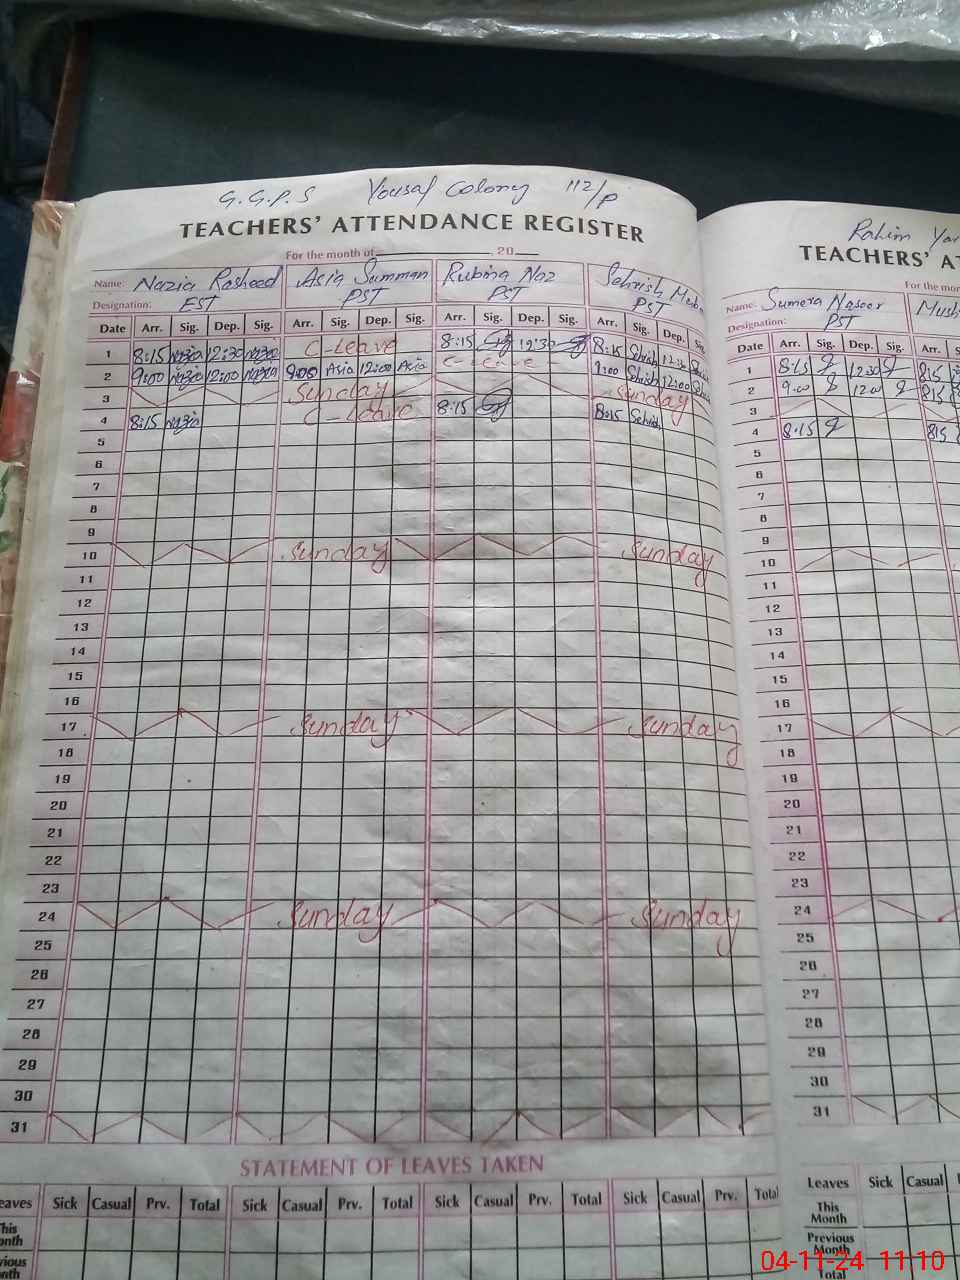 G.G.P.S Yousaf Colony 112/P
TEACHERS' ATTENDANCE REGISTER
For the month of , 20
Name: Nazia Rasheed Asia Samman Rubina Naz Sehrish
Designation: EST PST PST PST
Date Arr. Sig. Dep. Sig. Arr. Sig. Dep. Sig. Arr. Sig. Dep. Sig. Arr. Sig. Dep. Sig.
1 8:15 Nazia 12:30 Nazia C-Leave 8:15 12:30 8:15 12:30
2 9:00 Nazia 12:00 Nazia 9:00 Asia 12:00 Asia C-Leave 9:00 12:00
3 Sunday Sunday
4 8:15 Nazia C-Leave 8:15 8:15
5
6
7
8
9
10 Sunday Sunday
11
12
13
14
15
16
17 Sunday Sunday
18
19
20
21
22
23
24 Sunday Sunday
25
26
27
28
29
30
31
STATEMENT OF LEAVES TAKEN
eaves Sick Casual Prv. Total Sick Casual Prv. Total Sick Casual Prv. Total Sick Casual Prv. Total
This
onth
vious
onth
Rahim Yar
TEACHERS' AT
For the mon
Name: Sumera Naseer Mush
Designation: PST
Date Arr. Sig. Dep. Sig. Arr. S
1 8:15 12:30 8:15
2 9:00 12:00 8:15
3
4 8:15 8:15
5
6
7
8
9
10
11
12
13
14
15
16
17
18
19
20
21
22
23
24
25
26
27
28
29
30
31
Leaves Sick Casual
This
Month
Previous
Month
Total
04-11-24 11:10